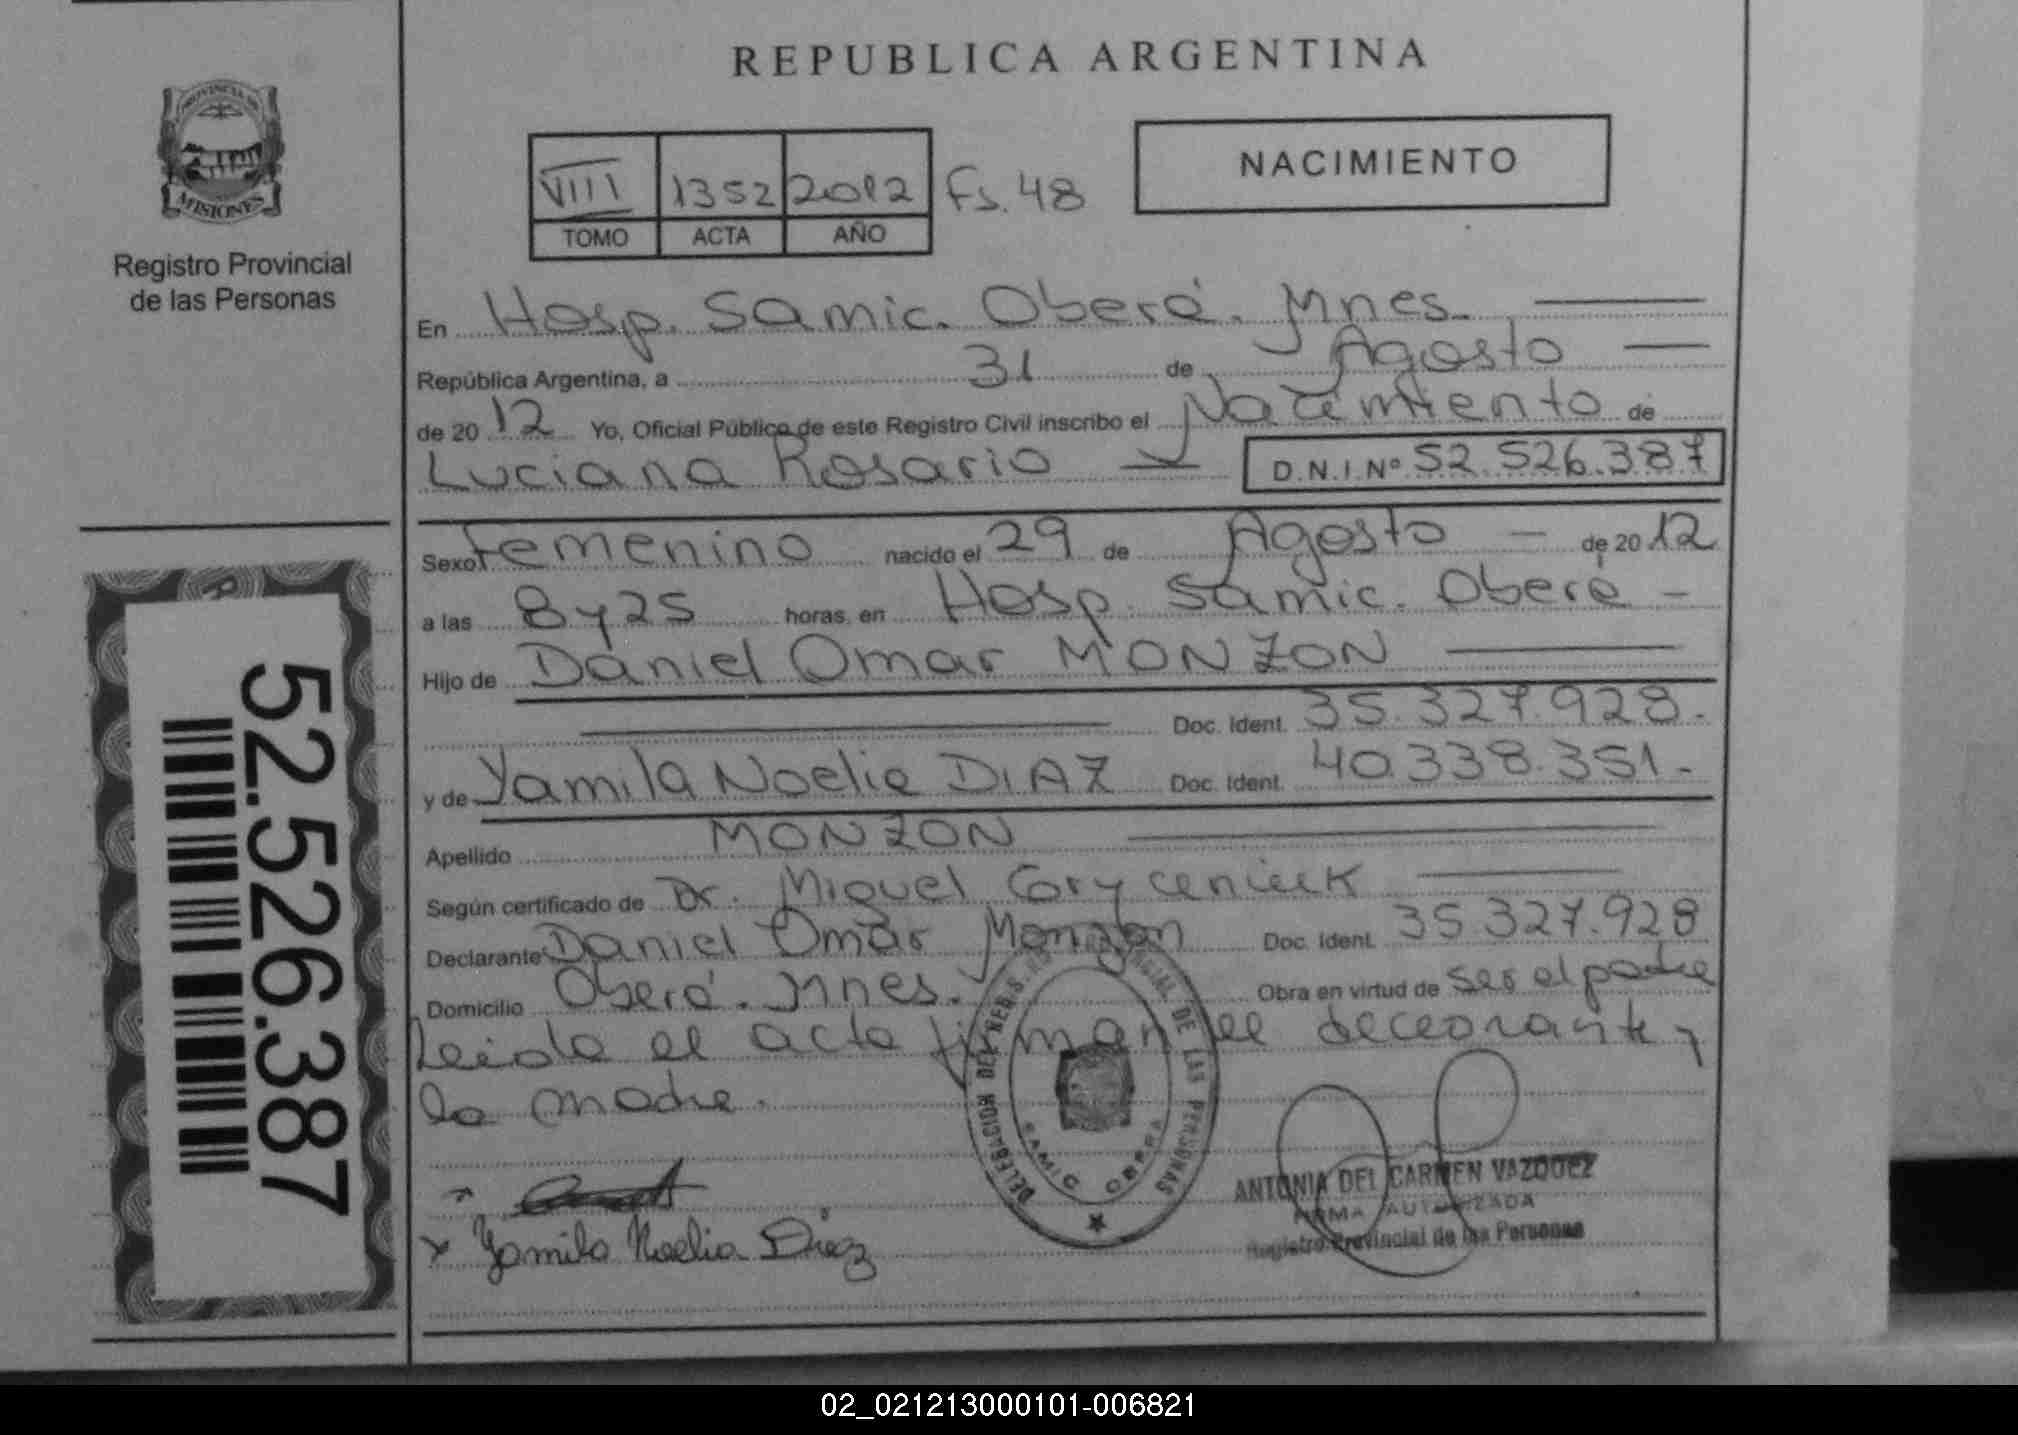 REPUBLICA ARGENTINA
PROVINCIA DE
MISIONES
Registro Provincial
de las Personas
VIII 1352 2012 Fs. 48
TOMO ACTA AÑO
NACIMIENTO
En Hosp. Samic. Oberá. Mnes.
República Argentina, a 31 de Agosto
de 20 12 Yo, Oficial Público de este Registro Civil inscribo el Nacimiento de
Luciana Rosario D.N.I.Nº 52.526.387
Sexo Femenino nacido el 29 de Agosto de 20 12
a las 8 y 25 horas, en Hosp. Samic. Oberá
Hijo de Daniel Omar MONZON
Doc. Ident. 35.327.928.
y de Yamila Noelia DIAZ Doc. Ident. 40.338.351.
Apellido MONZON
Según certificado de Dr. Miguel
Declarante Daniel Omar Monzon Doc. Ident. 35.327.928
Domicilio Oberá. Mnes. Obra en virtud de ser el padre
Leida el acta firman el declarante y
la madre.
DELEGACION DEL REG. PROVINCIAL DE LAS PERSONAS
SAMIC OBERA
x
x Yamila Noelia Diaz
ANTONIA DEL CARMEN VAZQUEZ
FIRMA AUTORIZADA
Registro Provincial de las Personas
52.526.387
02_021213000101-006821